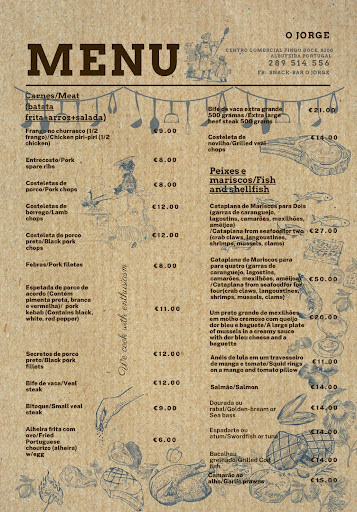 O JORGE
MENU
CENTRO COMERCIAL PINGO DOCE, 8200
ALBUFEIRA PORTUGAL
289 514 556
FB: SNACK-BAR O JORGE
Carnes/Meat
(batata
frita+arros+salada)
Frango no churrasco (1/2
frango)/Chicken piri-piri (1/2
chicken)
€9.00
Entrecosto/Pork
spare ribs
€8.00
Costeletas de
porco/Pork chops
€8.00
Costeletas de
borrego/Lamb
chops
€12.00
Costeleta de porco
preto/Black pork
chops
€12.00
Febras/Pork filetes
€8.00
Espetada de porco de
acordo (Contém
pimenta preta, branca
e vermelha)/ pork
kebab (Contains black,
white, red pepper)
€11.00
Secretos de porco
preto/Black pork
fillets
€12.00
Bife de vaca/Veal
steak
€12.00
Bitoque/Small veal
steak
€9.00
Alheira frita com
ovo/Fried
Portuguese
chourizo (alheira)
w/egg
€6.00
We cook with enthusiasm
Bife de vaca extra grande
500 grámas /Extra large
beef steak 500 grams
€21.00
Costeleta de
novilho/Grilled veal
chops
€14.00
Peixes e
mariscos/Fish
and shellfish
Cataplana de Mariscos para Dois
(garras de caranguejo,
lagostins, camarões, mexilhões,
amêijoa)
/Cataplana from seafoodfor two
(crab claws, langoustines,
shrimps, mussels, clams)
€27.00
Cataplana de Mariscos para
para quatro (garras de
caranguejo, lagostins,
camarões, mexilhões, amêijoa)
/Cataplana from seafoodfor
four(crab claws, langoustines,
shrimps, mussels, clams)
€50.00
Um prato grande de mexilhões
em molho cremoso com queijo
dor bleu e baguete/A large plate
of mussels in a creamy sauce
with dor bleu cheese and a
baguette
€20.00
Anéis de lula em um travesseiro
de manga e tomate/Squid rings
on a mango and tomato pillow
€11.00
Salmão/Salmon
€14.00
Dourada ou
robal/Golden-bream or
Sea bass
€14.00
Espadarte ou
atum/Swordfish or tuna
€14.00
Bacalhau
grelhado/Grilled Cod
fish
€14.00
Camarão ao
alho/Garlic prawns
€15.00